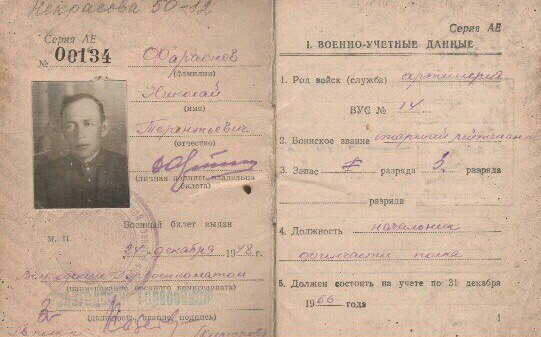 Некрасова 50-12
Серия АЕ
№ 00134
Фараонов
(фамилия)
Николай
(имя)
Терентьевич
(отчество)
(личная подпись владельца
билета)
М. П.
Военный билет выдан
24 декабря 1948 г.
(наименование военного комиссариата)
(должность, звание, подпись)
Серия АЕ
I. ВОЕННО-УЧЕТНЫЕ ДАННЫЕ
1. Род войск (служба) артиллерия
ВУС № 14
2. Воинское звание старший лейтенант
3. Запас разряда 3 разряда
разряда
4. Должность начальник
полка
5. Должен состоять на учете по 31 декабря
1966 года
1